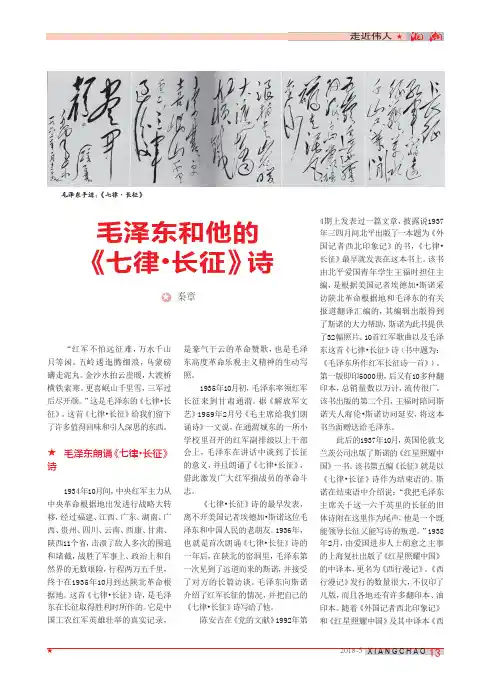 走近伟人 ★ 湘潮
毛泽东手迹：《七律·长征》
毛泽东和他的
《七律·长征》诗
秦章
“红军不怕远征难，万水千山
只等闲。五岭逶迤腾细浪，乌蒙磅
礴走泥丸。金沙水拍云崖暖，大渡桥
横铁索寒。更喜岷山千里雪，三军过
后尽开颜。”这是毛泽东的《七律·长
征》。这首《七律·长征》给我们留下
了许多值得回味和引人深思的东西。
★ 毛泽东朗诵《七律·长征》
诗
1934年10月间，中央红军主力从
中央革命根据地出发进行战略大转
移，经过福建、江西、广东、湖南、广
西、贵州、四川、云南、西康、甘肃、
陕西11个省，击溃了敌人多次的围追
和堵截，战胜了军事上、政治上和自
然界的无数艰险，行程两万五千里，
终于在1935年10月到达陕北革命根
据地。这首《七律·长征》诗，是毛泽
东在长征取得胜利时所作的。它是中
国工农红军英雄壮举的真实记录，
是豪气干云的革命赞歌，也是毛泽
东高度革命乐观主义精神的生动写
照。
1935年10月初，毛泽东率领红军
长征来到甘肃通渭。据《解放军文
艺》1959年2月号《毛主席给我们朗
诵诗》一文说，在通渭城东的一所小
学校里召开的红军副排级以上干部
会上，毛泽东在讲话中谈到了长征
的意义，并且朗诵了《七律·长征》，
借此激发广大红军指战员的革命斗
志。
《七律·长征》诗的最早发表，
离不开美国记者埃德加·斯诺这位毛
泽东和中国人民的老朋友。1936年，
也就是首次朗诵《七律·长征》诗的
一年后，在陕北的窑洞里，毛泽东第
一次见到了远道而来的斯诺，并接受
了对方的长篇访谈。毛泽东向斯诺
介绍了红军长征的情况，并把自己的
《七律·长征》诗写给了他。
陈安吉在《党的文献》1992年第
4期上发表过一篇文章，披露说1937
年三四月间北平出版了一本题为《外
国记者西北印象记》的书，《七律·
长征》最早就发表在这本书上。该书
由北平爱国青年学生王福时担任主
编，是根据美国记者埃德加·斯诺采
访陕北革命根据地和毛泽东的有关
报道翻译汇编的，其编辑出版得到
了斯诺的大力帮助，斯诺为此书提供
了32幅照片、10首红军歌曲以及毛泽
东这首《七律·长征》诗（书中题为：
《毛泽东所作红军长征诗一首》）。
第一版即印5000册，后又有10多种翻
印本，总销量数以万计，流传很广。
该书出版的第二个月，王福时陪同斯
诺夫人海伦·斯诺访问延安，将这本
书当面赠送给毛泽东。
此后的1937年10月，英国伦敦戈
兰茨公司出版了斯诺的《红星照耀中
国》一书。该书第五编《长征》就是以
《七律·长征》诗作为结束语的。斯
诺在结束语中介绍说：“我把毛泽东
主席关于这一六千英里的长征的旧
体诗附在这里作为尾声。他是一个既
能领导长征又能写诗的叛逆。”1938
年2月，由爱国进步人士胡愈之主事
的上海复社出版了《红星照耀中国》
的中译本，更名为《西行漫记》。《西
行漫记》发行的数量很大，不仅印了
几版，而且各地还有许多翻印本、油
印本。随着《外国记者西北印象记》
和《红星照耀中国》及其中译本《西
★ 2018·5 XIANGCHAO 13